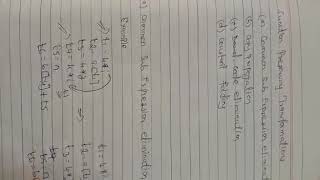 Function Preserving Transformations
(a) Common Sub Expression eliminat
(b) Copy propagation
(c) Dead code elimination
(d) Constant folding
a) Common Sub Expression elimination
Example
t1 = 4*i
t2 = a[t1]
t3 = 4*j
t4 = 4*i
t5 = n
t6 = b[t4] + t5
⇒
t1 = 4*i
t2 = a[t1
t3 = 4*j
t5 = n